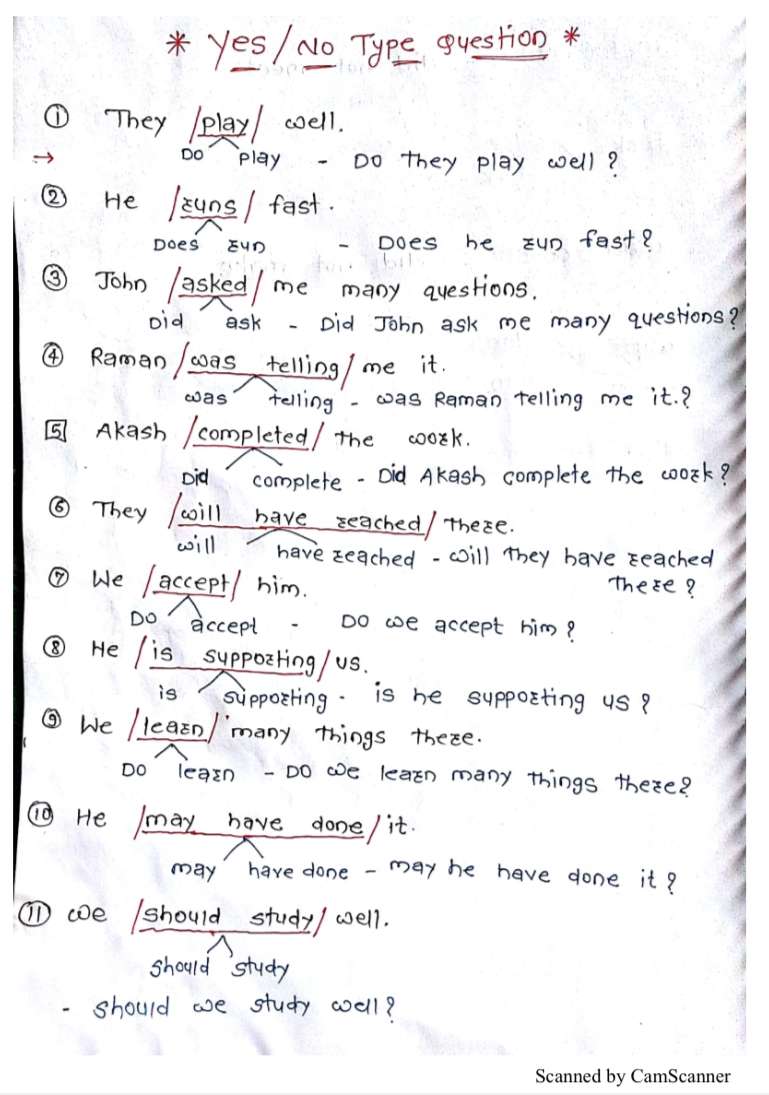 * Yes/No Type Question *
① They /play/ well.
→ Do play - Do they play well ?
② He /runs/ fast.
Does run - Does he run fast?
③ John /asked/ me many questions.
Did ask - Did John ask me many questions?
④ Raman /was telling/ me it.
was telling - was Raman telling me it.?
5 Akash /completed/ the work.
Did complete - Did Akash complete the work?
⑥ They /will have reached/ there.
will have reached - will they have reached
there ?
⑦ We /accept/ him.
Do accept - Do we accept him ?
⑧ He /is supporting/ us.
is supporting - is he supporting us ?
⑨ We /learn/ many things there.
Do learn - Do we learn many things there?
⑩ He /may have done/ it.
may have done - may he have done it ?
⑪ We /should study/ well.
should study
- should we study well?
Scanned by CamScanner